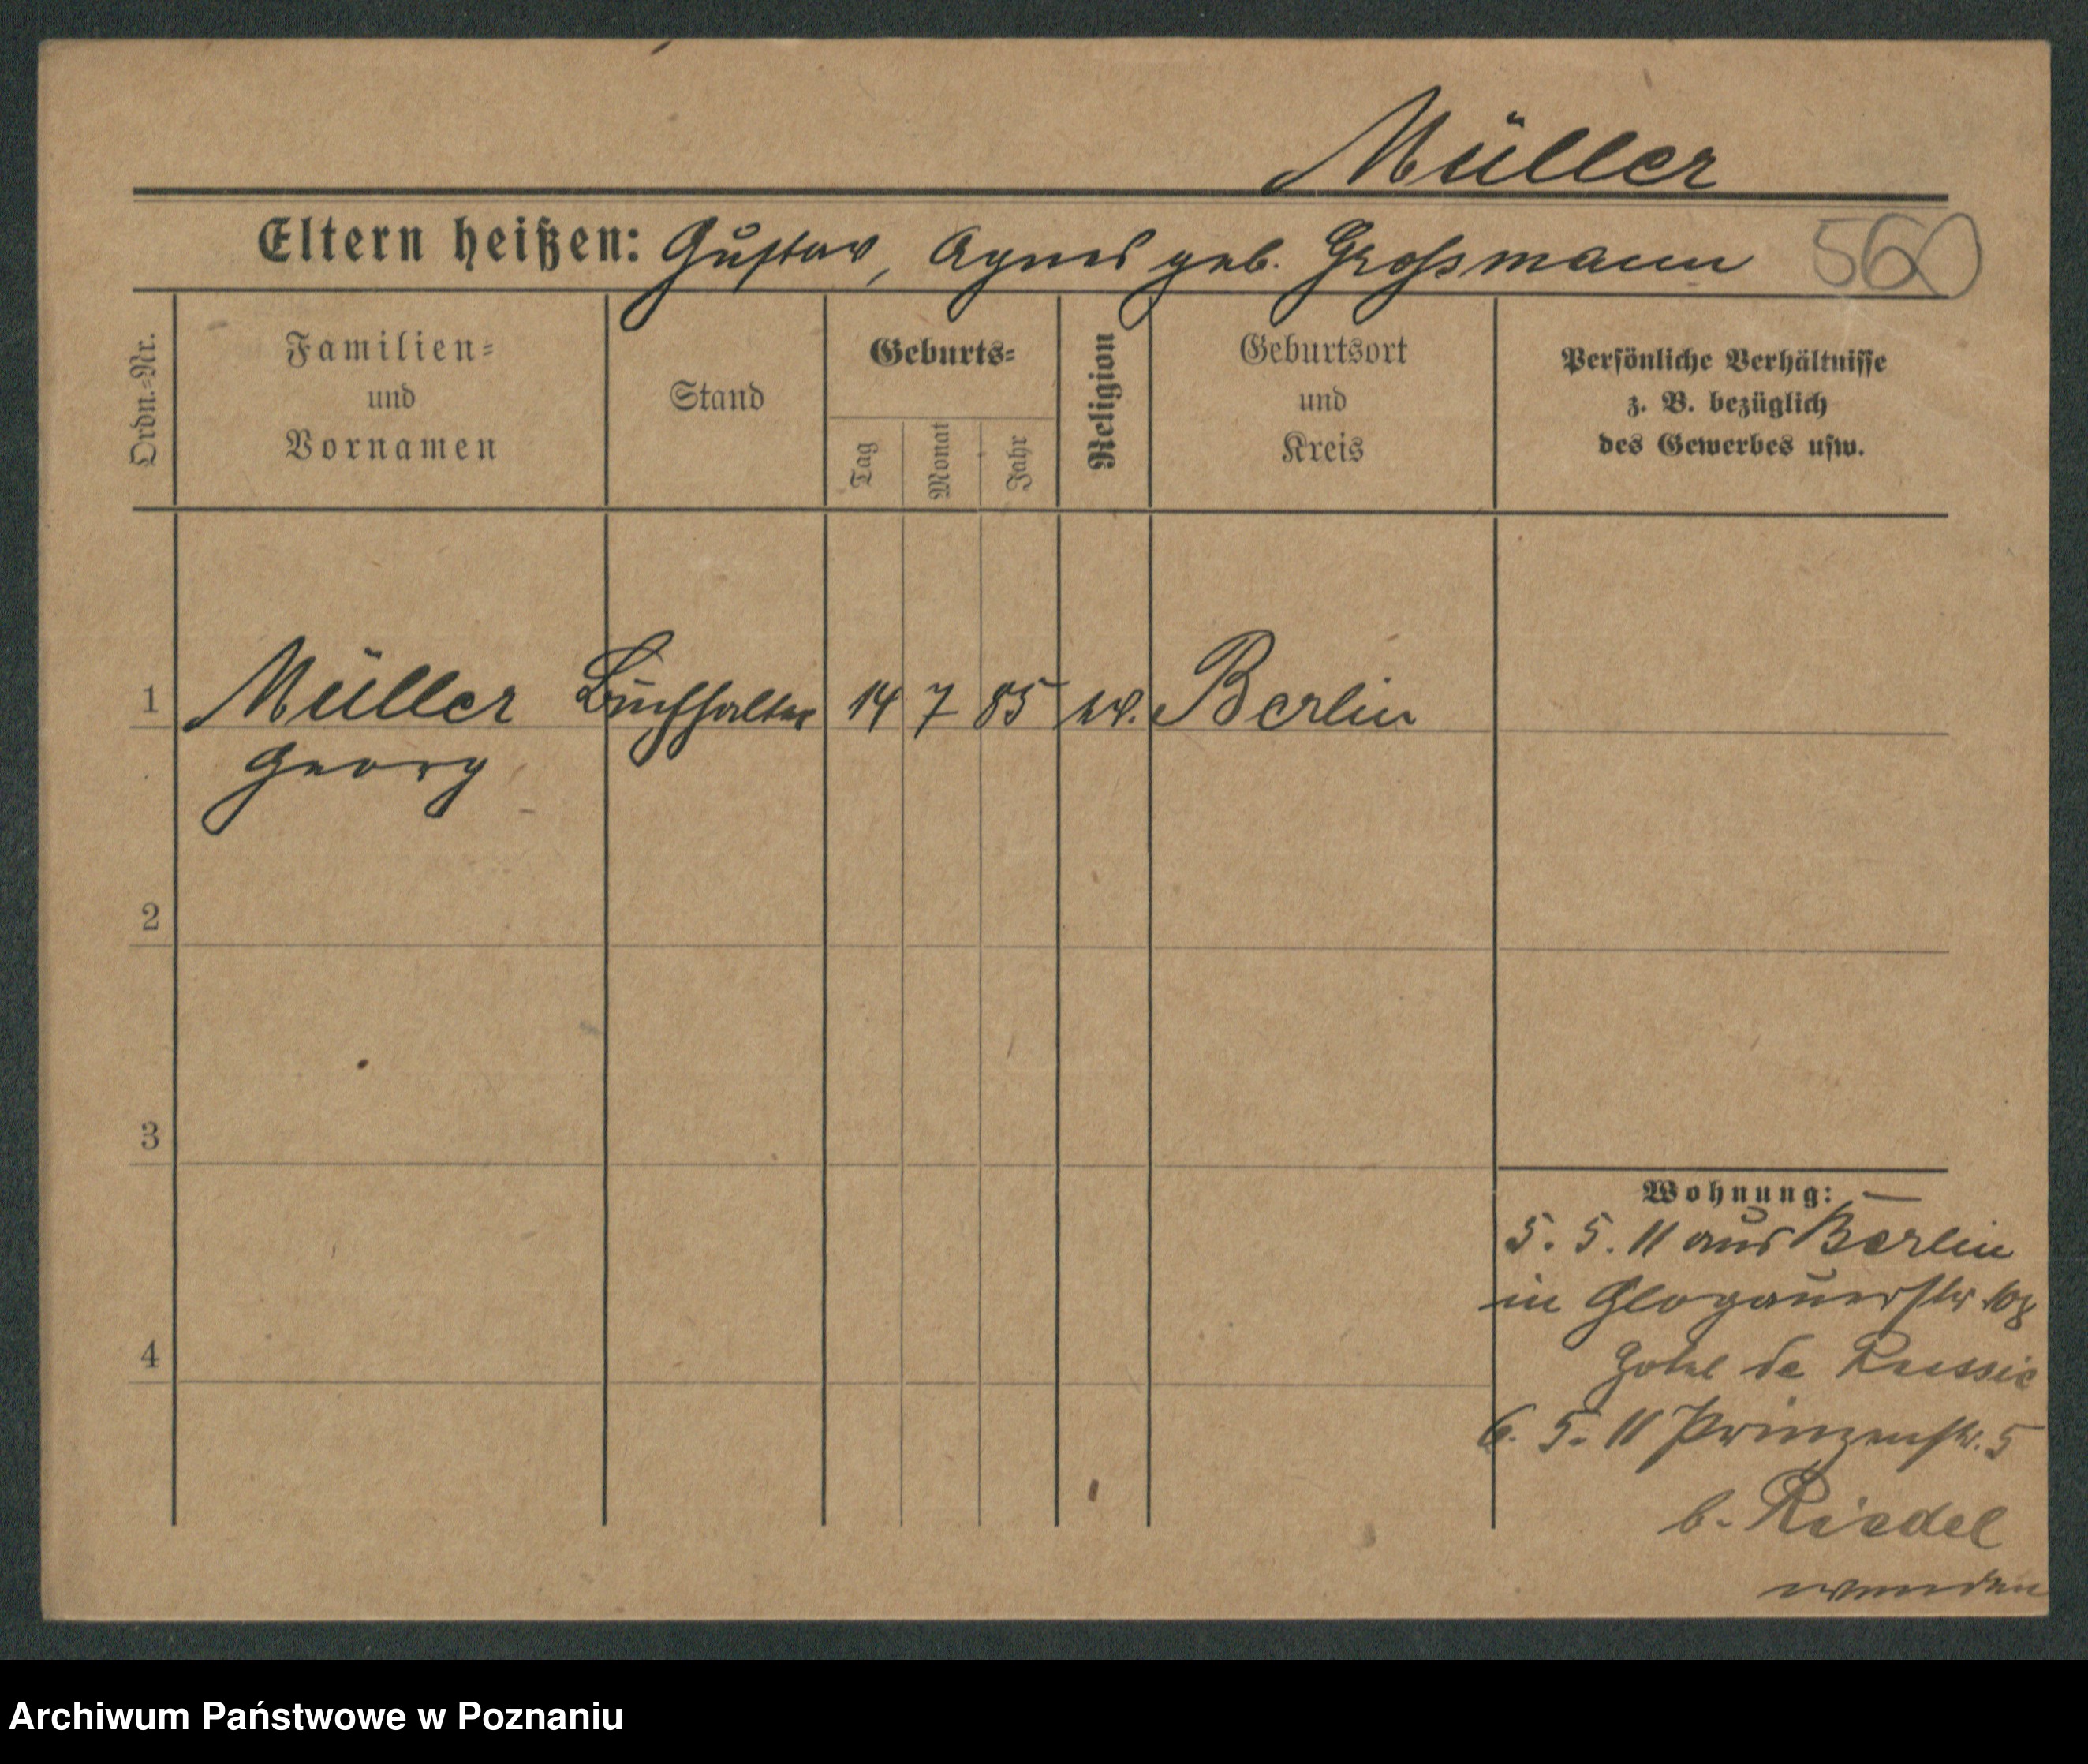 Müller
Eltern heißen: Gustav, Agnes geb. Großmann
560
Ordn.-Nr.
Familien-
und
Vornamen
Stand
Geburts-
Tag
Monat
Jahr
Religion
Geburtsort
und
Kreis
Persönliche Verhältnisse
z. B. bezüglich
des Gewerbes usw.
1 Müller Buchhalter 14 7 85 ev. Berlin
Georg
2
3
4
Wohnung: —
5. 5. 11 aus Berlin
in Glogauerstr
Hotel de Russie
6. 5. 11 Prinzenstr. 5
b. Riedel
wenden
Archiwum Państwowe w Poznaniu